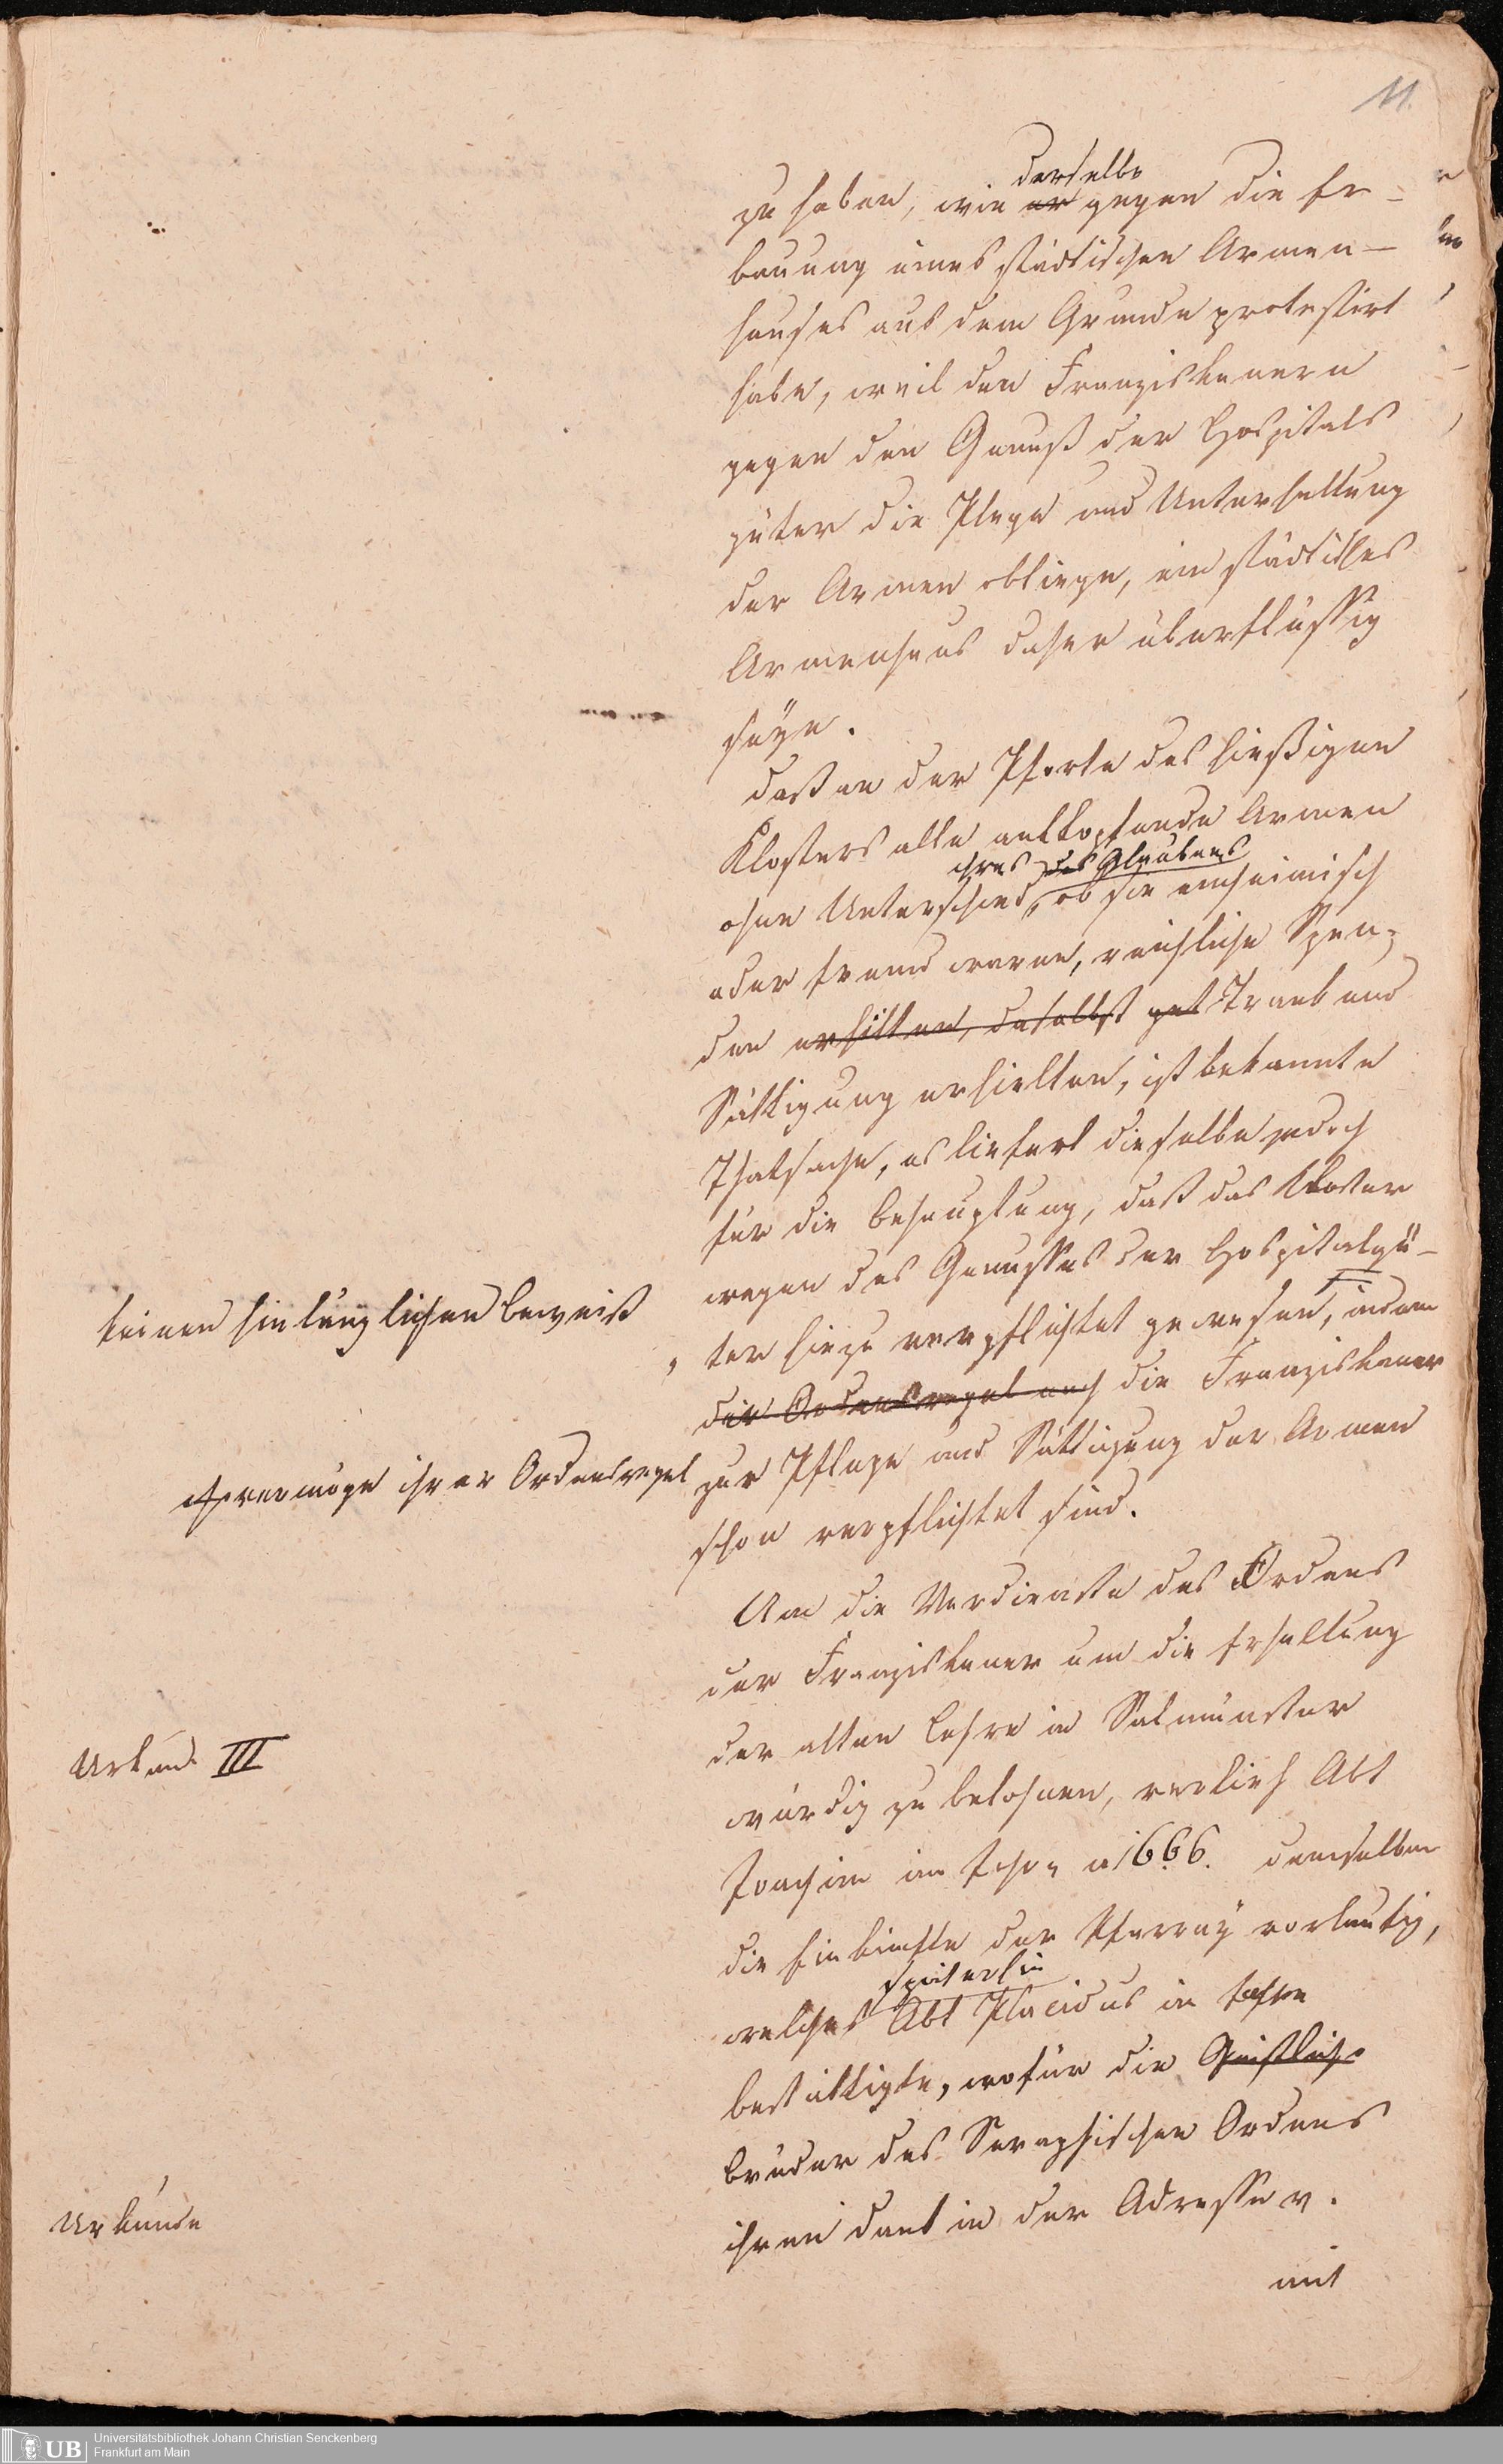 11.
derselbe
zu haben, wie er gegen die Er-
bauung eines städtischen Armen-
hauses aus dem Grunde protestirt
habe, weil den Franziskanern
gegen den Genuß der Hospitals
güter die Plege und Unterhaltung
der Armen obliege, ein städtisches
Armenhaus daher überflüssig
seye.
daß an der Pforte des hießigen
Klosters alle anklopfende Armen
ihres des Glaubens
ohne Unterschied, ob sie einheimisch
oder fremd waren, reichliche Spen-
den erhilten, daselbst gut Trank und
Sättigung erhielten, ist bekannte
Thatsache, es liefert dieselbe jedoch
für die Behauptung, daß das Kloster
wegen des Genusses der Hospitalgü-
keinen hinlänglichen Beweiß
ter hiezu verpflichtet gewesen, indem
die Ordensregel auch die Franziskaner
vermöge ihrer Ordensregel
zur Pflege und Sättigung der Armen
schon verpflichtet sind.
Um die Verdienste des Ordens
der Franziskaner um die Erhaltung
der alten Lehre in Salmünster
Urkund III
würdig zu belohnen, verlieh Abt
Joachim im 1666. demselben
die Einkünfte der Pfarrey vorlaufig,
späterhin
welches Abt Placidus in
bestättigte, wofür die Geistliche
Brüder des Seraphischen Ordens
Urkunde
ihren dank in der Adresse v.
mit
UB Universitätsbibliothek Johann Christian Senckenberg
Frankfurt am Main